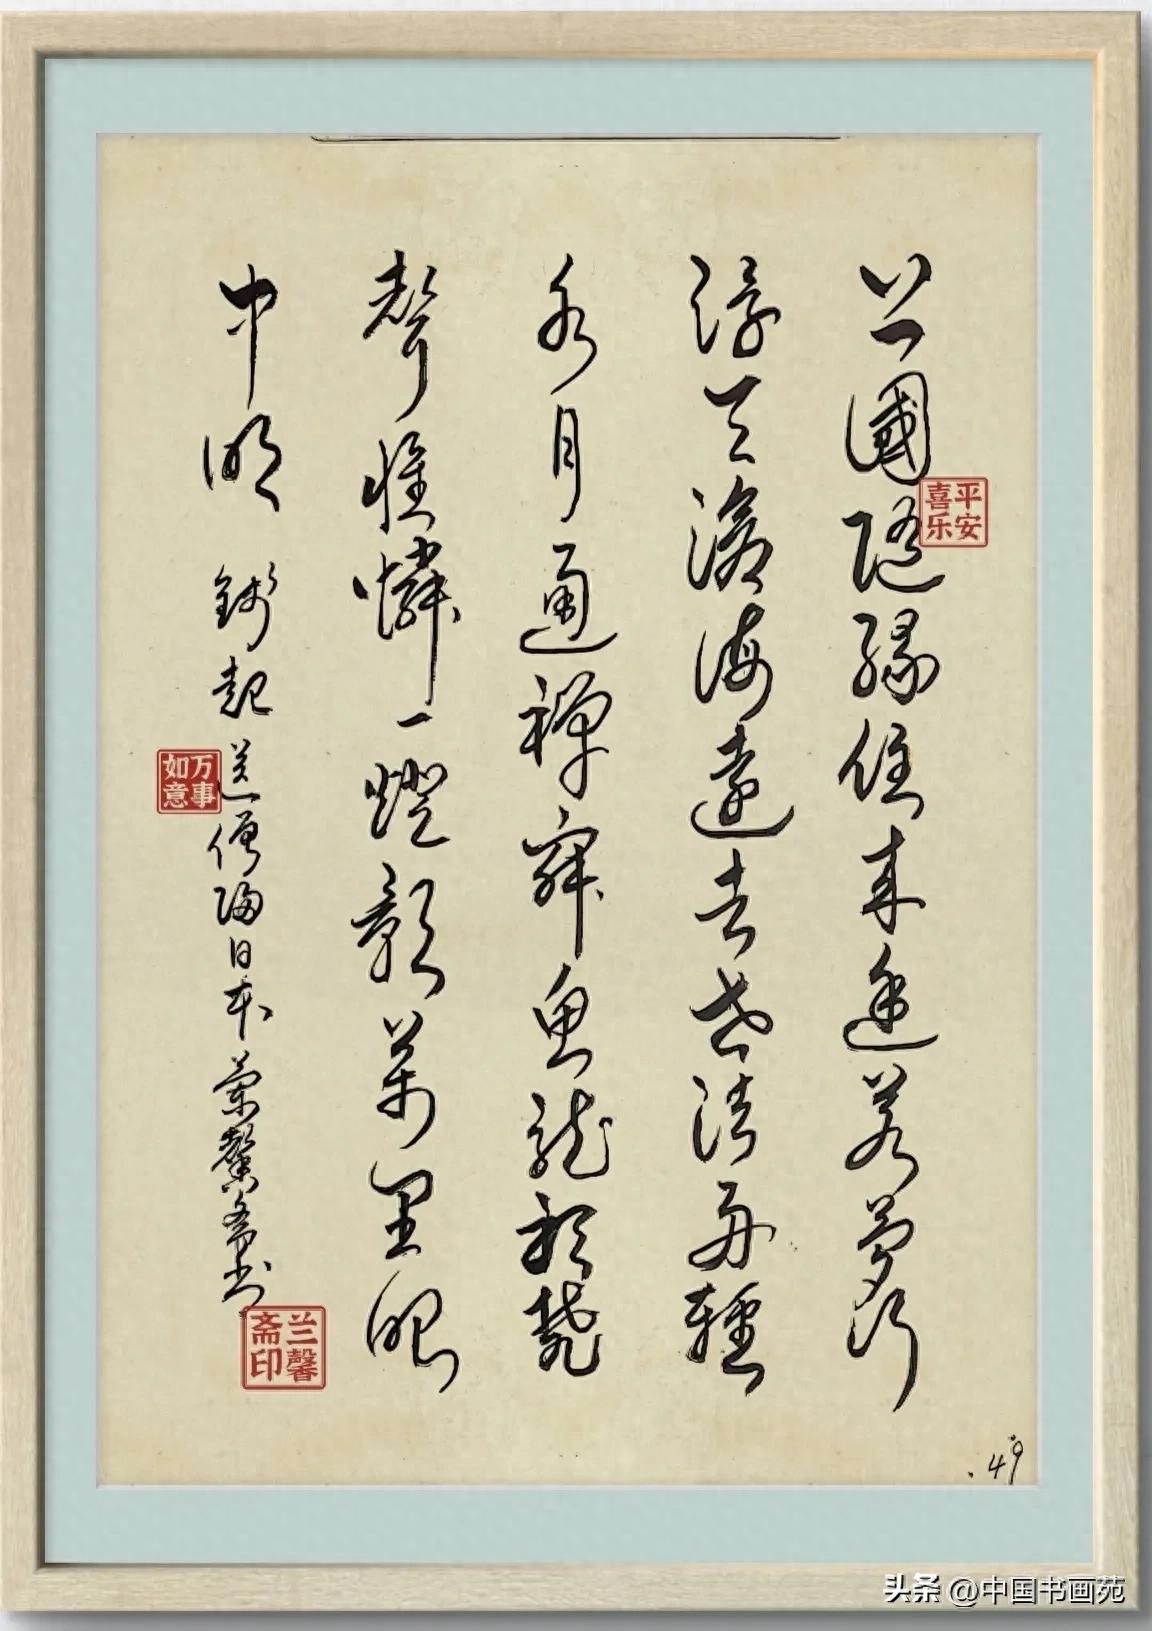 上國隨緣住來途若夢行
浮天滄海遠去世法舟輕
水月通禪寂魚龍聽梵
聲惟憐一燈影萬里眼
中明 錢起送僧歸日本 蘭馨斋书
平安喜乐
万事如意
兰馨斋印
.49
头条 @中国书画苑